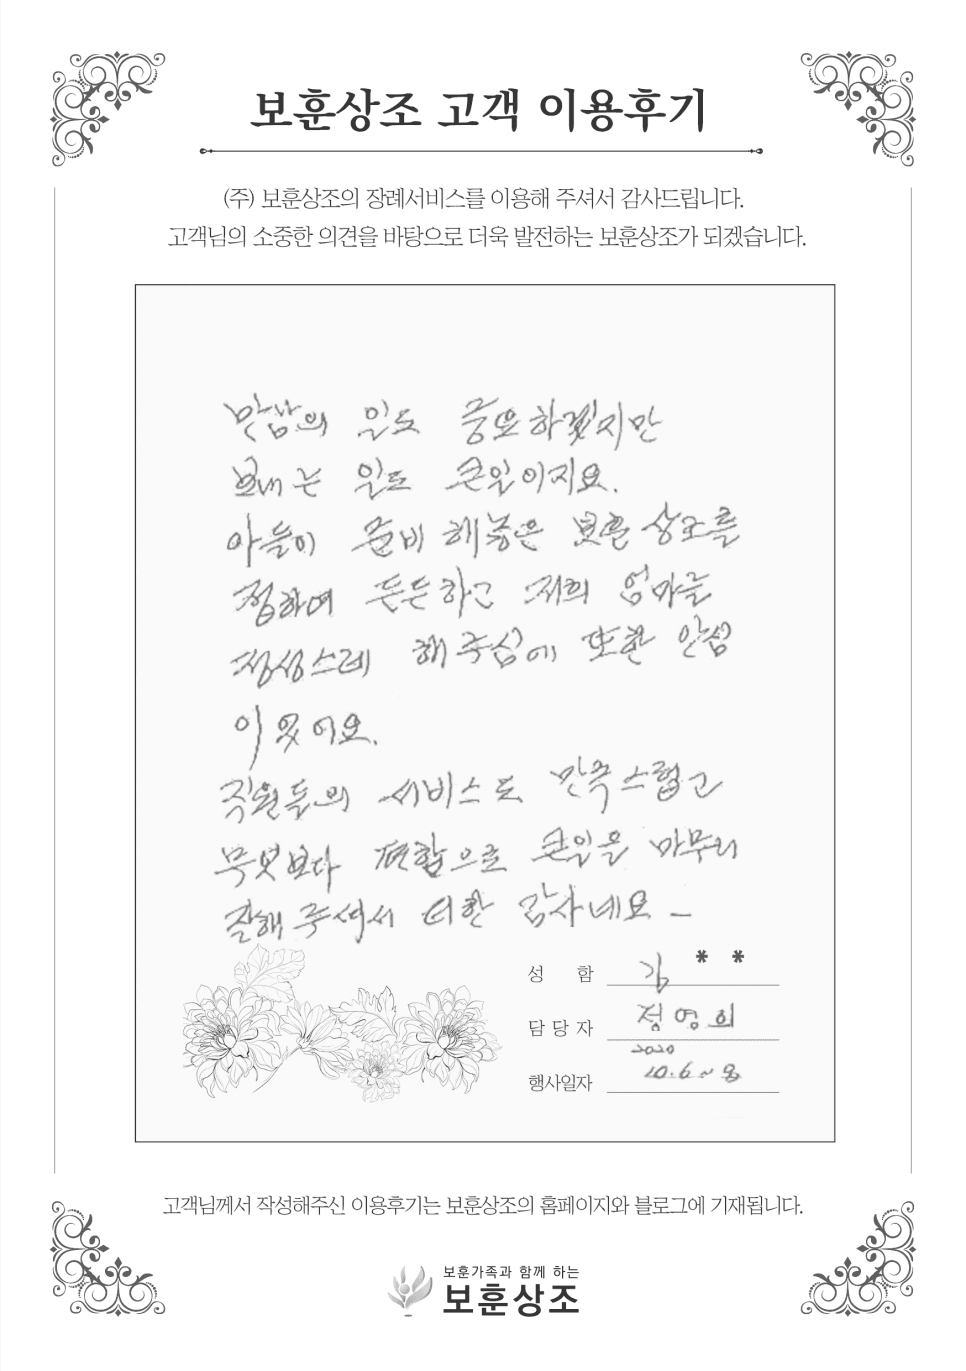 보훈상조 고객 이용후기
(주) 보훈상조의 장례서비스를 이용해 주셔서 감사드립니다.
고객님의 소중한 의견을 바탕으로 더욱 발전하는 보훈상조가 되겠습니다.
만남의 일도 중요하겠지만
보내는 일도 큰일이지요.
아들이 준비해놓은 보훈상조를
접하여 든든하고 저희 엄마를
정성스레 해주심에 또한 안심
이 왔어요.
직원들의 서비스도 만족스럽고
무엇보다 편함으로 큰일을 마무리
잘해주셔서 더한 감사네요 -
성 함 김 * *
담당자 정영희
행사일자 2020 10.6~8
고객님께서 작성해주신 이용후기는 보훈상조의 홈페이지와 블로그에 기재됩니다.
보훈가족과 함께 하는
보훈상조